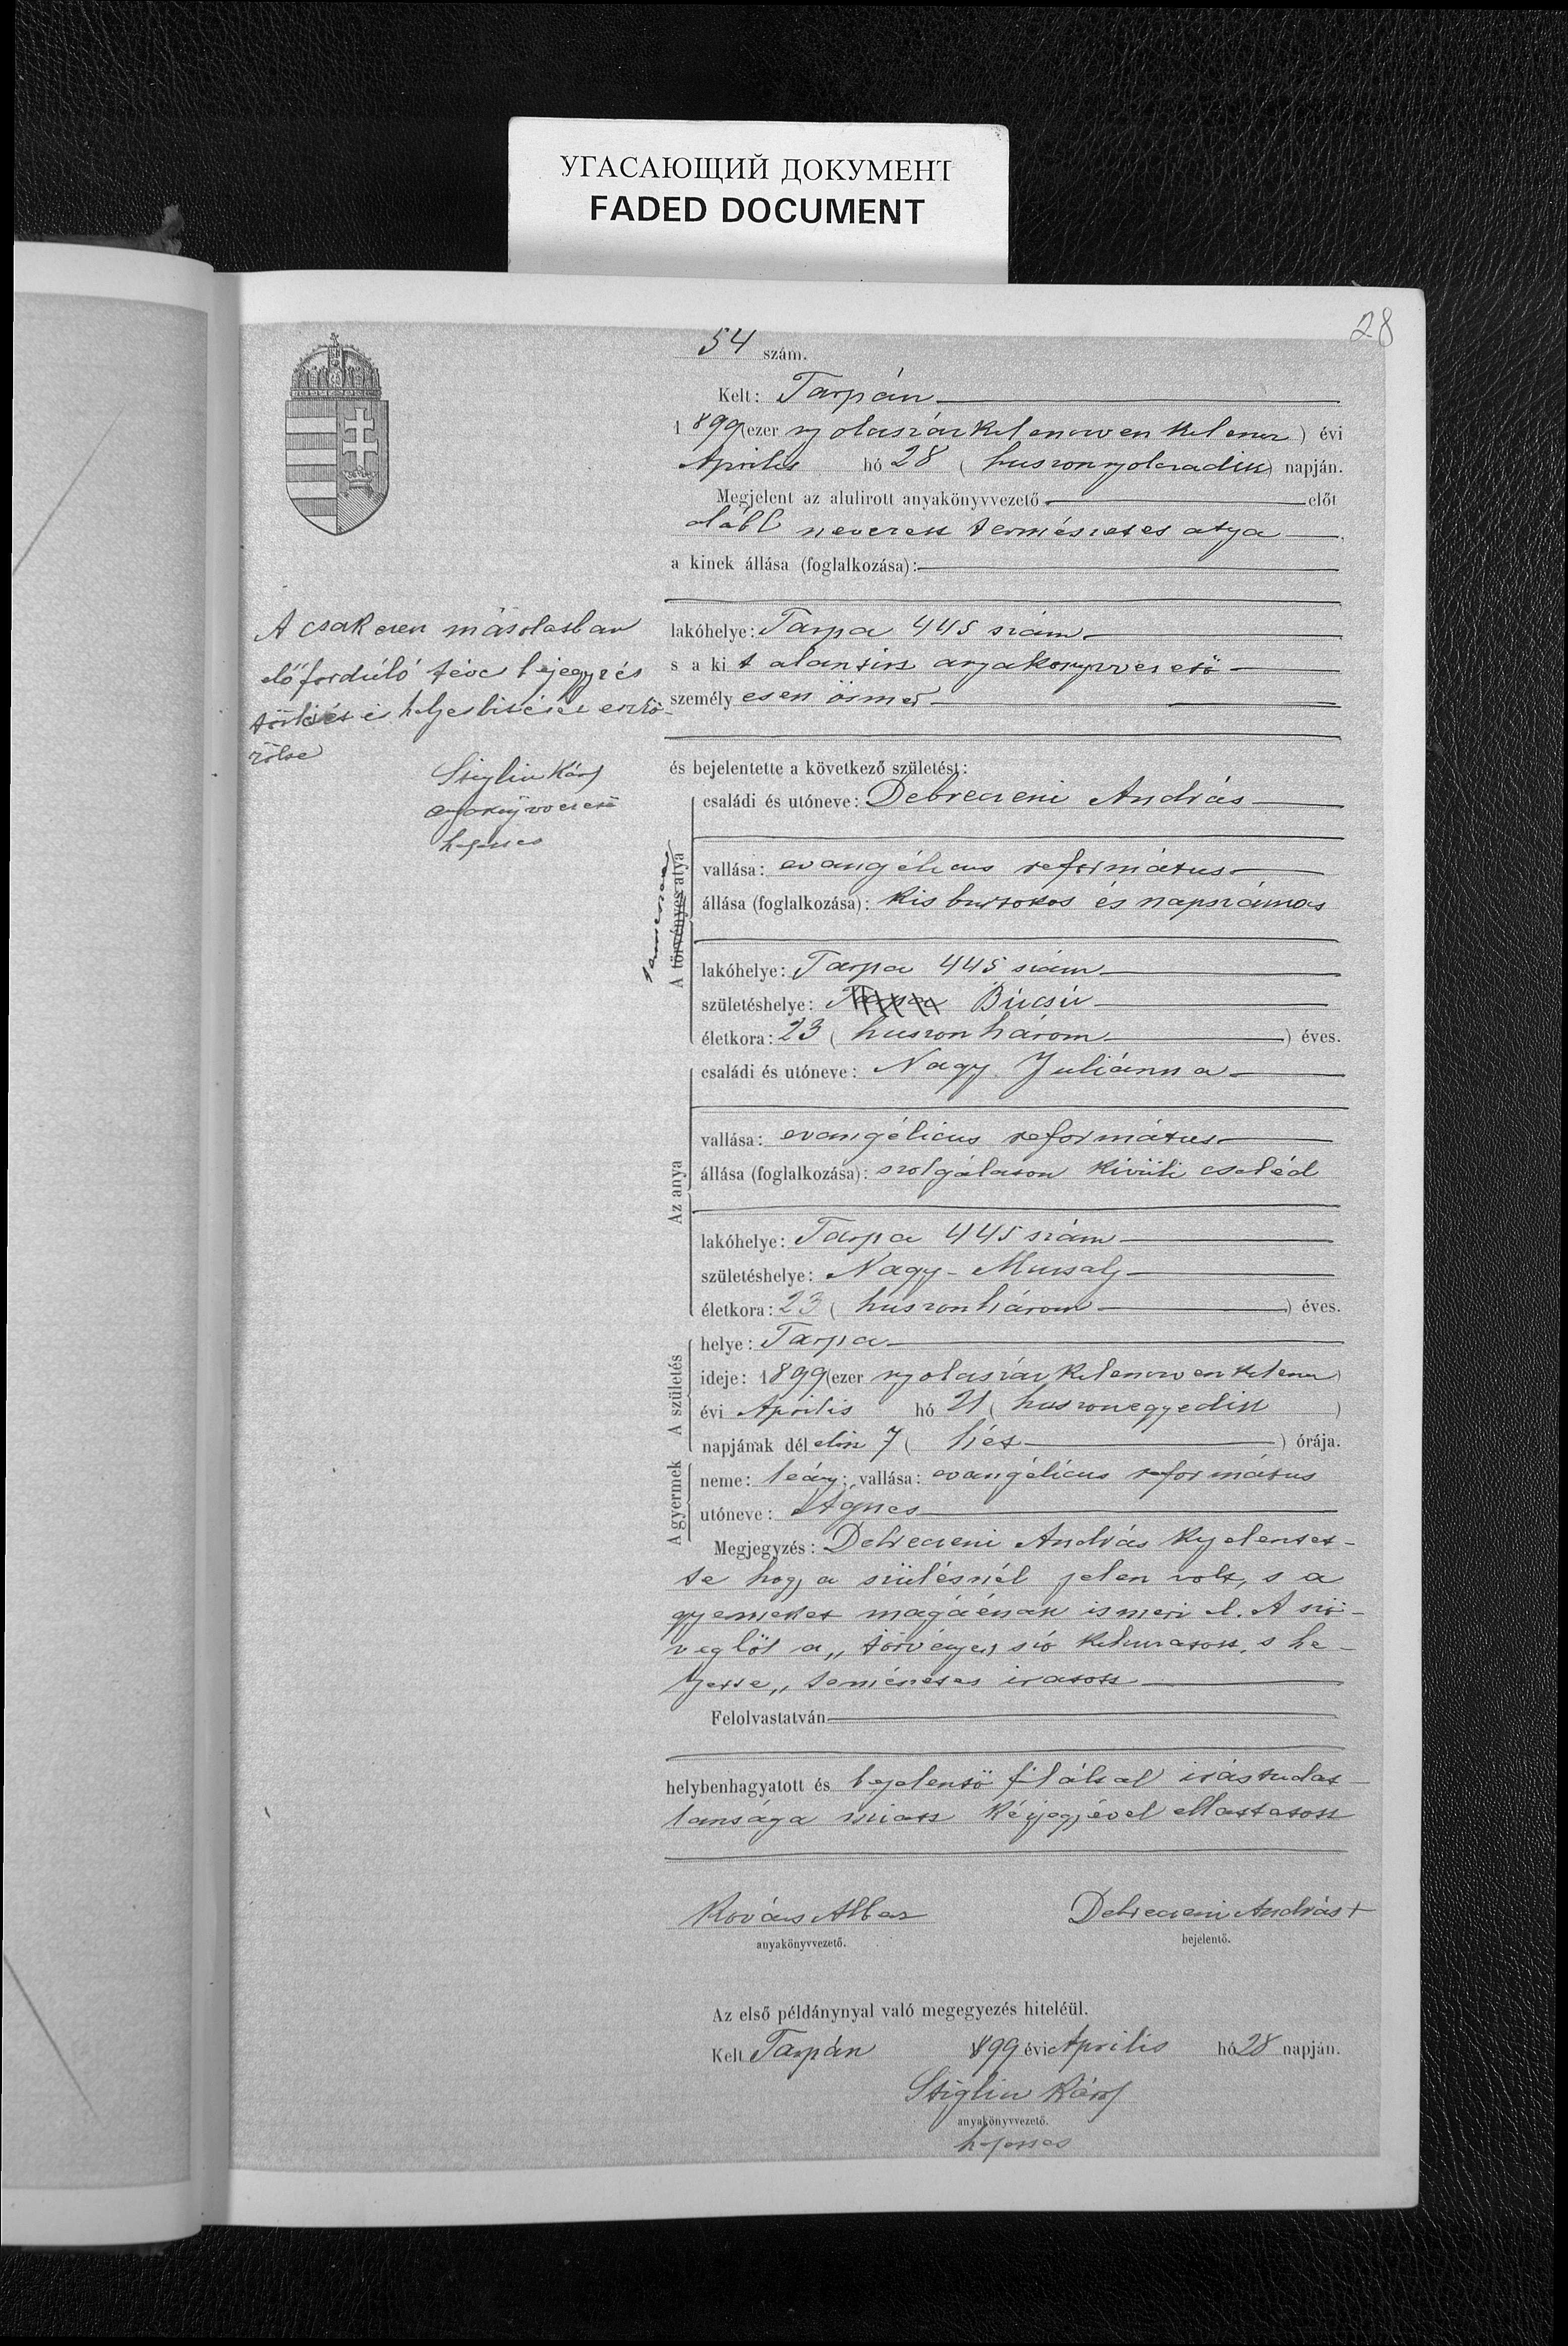 УГАСАЮЩИЙ ДОКУМЕНТ
FADED DOCUMENT
28
54 szám.
Kelt: Tarpán
1899 (ezer nyolcszázkilencvenkilenc) évi
Április hó 28 (huszonnyolcadik) napján.
Megjelent az alulirott anyakönyvvezető előtt
alább nevezett természetes atya
a kinek állása (foglalkozása):
lakóhelye: Tarpa 445 szám
s a kit alantirt anyakönyvvezető
személyesen ösmer
A csak ezen másolatban
előforduló téves bejegyzés
törlését és helyesbítését eszkö-
zölte
Stiglin Károly
anyakönyvvezető
helyettes
és bejelentette a következő születést:
A törvényes atya
természetes
családi és utóneve: Debreczeni András
vallása: evangélicus református
állása (foglalkozása): kis birtokos és napszámos
lakóhelye: Tarpa 445 szám
születéshelye: Tarpa Búcsú
életkora: 23 (huszonhárom) éves.
Az anya
családi és utóneve: Nagy Juliánna
vallása: evangélicus református
állása (foglalkozása): szolgálaton kivüli cseléd
lakóhelye: Tarpa 445 szám
születéshelye: Nagy-Muzsaly
életkora: 23 (huszonhárom) éves.
A születés
helye: Tarpa
ideje: 1899 (ezer nyolcszázkilencvenkilenc)
évi Április hó 21 (huszonegyedik)
napjának dél előtt 7 (hét) órája.
A gyermek
neme: leány; vallása: evangélicus református
utóneve: Ágnes
Megjegyzés: Debreczeni András kijelentet-
te hogy a szülésnél jelen volt, s a
gyermeket magáénak ismeri el. A szö-
vegből a „törvényes szó kihuzatott, s he-
lyette „természetes iratott
Felolvastatván
helybenhagyatott és bejelentő fél által irástudat-
lansága miatt kézjegyével ellátatott
Kovács Albert
anyakönyvvezető.
Debreczeni András +
bejelentő.
Az első példánynyal való megegyezés hiteléül.
Kelt Tarpán 1899 évi Április hó 28 napján.
Stiglin Károly
anyakönyvvezető.
helyettes